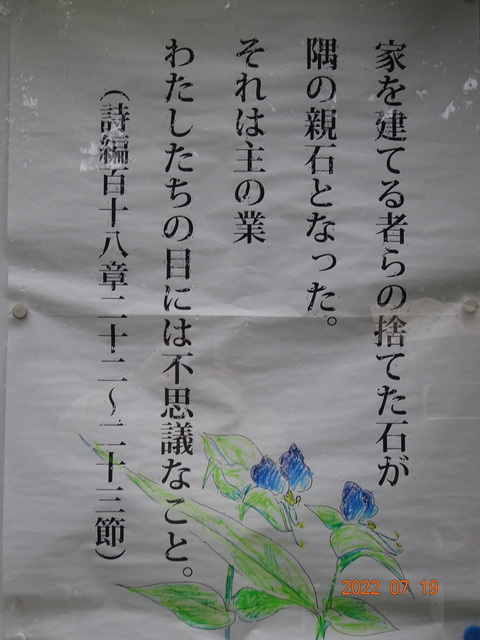 家を建てる者らの捨てた石が
隅の親石となった。
それは主の業
わたしたちの目には不思議なこと。
（詩編百十八章二十二～二十三節）
2022 07 19